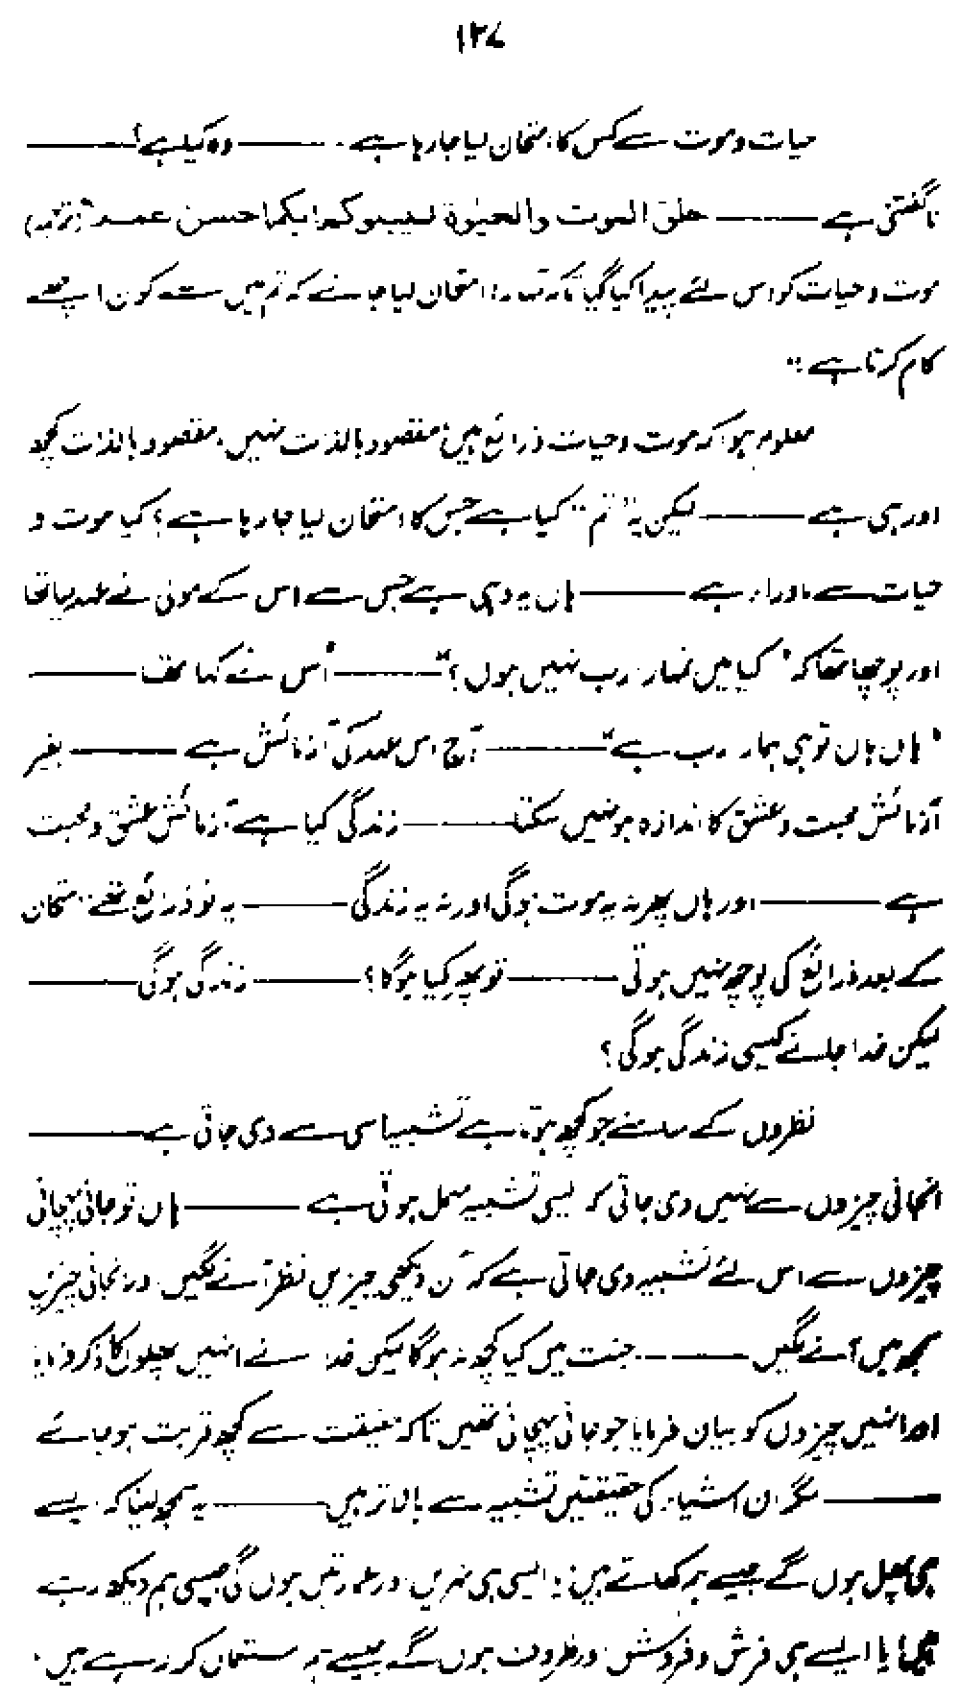 ۱۲۷
حیات و موت سے کس کا امتحان لیا جا رہا ہے ——— وہ کیا ہے؟ ———
ناگفتنی ہے ——— خلق الموت والحیوٰة لیبلوکم ایکم احسن عملا (ترجمہ)
موت و حیات کو اس لئے پیدا کیا گیا تاکہ تمہارا امتحان لیا جائے کہ تم میں سے کون اچھے
کام کرتا ہے "
معلوم ہوا کہ موت و حیات ذرائع ہیں، مقصود بالذات نہیں، مقصود بالذات کچھ
اور ہی ہے ——— لیکن یہ "تم" کیا ہے جس کا امتحان لیا جا رہا ہے؟ کیا موت و
حیات سے ماوراء ہے ——— ہاں یہ وہی ہے جس سے اس کے مولیٰ نے عہد لیا تھا
اور پوچھا تھا کہ "کیا میں تمہارا رب نہیں ہوں؟" ——— اُس نے کہا تھا ———
"ہاں ہاں تو ہی ہمارا رب ہے" ——— آج اس عہد کی آزمائش ہے ——— بغیر
آزمائش محبت و عشق کا اندازہ ہو نہیں سکتا ——— زندگی کیا ہے آزمائش عشق و محبت
ہے ——— اور ہاں پھر نہ یہ موت ہوگی اور نہ یہ زندگی ——— یہ تو ذرائع تھے، امتحان
کے بعد ذرائع کی پوچھ نہیں ہوتی ——— تو پھر کیا ہوگا؟ ——— زندگی ہوگی ———
لیکن خدا جانے کیسی زندگی ہوگی؟
نظروں کے سامنے جو کچھ ہوتا ہے تشبیہ اسی سے دی جاتی ہے ———
انجانی چیزوں سے نہیں دی جاتی کہ ایسی تشبیہ مہمل ہوتی ہے ——— ہاں تو جانی پہچانی
چیزوں سے اس لئے تشبیہ دی جاتی ہے کہ اَن دیکھی چیزیں نظر آنے لگیں اور انجانی چیزیں
سمجھ میں آنے لگیں ——— جنت میں کیا کچھ نہ ہوگا لیکن خدا نے انہیں پھلوں کا ذکر فرمایا
اور انہیں چیزوں کو بیان فرمایا جو جانی پہچانی تھیں تاکہ حقیقت سے کچھ قربت ہو جائے
——— مگر ان اشیاء کی حقیقتیں تشبیہ سے بالاتر ہیں ——— یہ سمجھ لینا کہ ایسے
ہی پھل ہوں گے جیسے ہم کھاتے ہیں؛ یا ایسی ہی نہریں اور عورتیں ہوں گی جیسی ہم دیکھ رہے
ہیں؛ یا ایسے ہی فرش و فروش اور ظروف ہوں گے جیسے ہم استعمال کر رہے ہیں۔